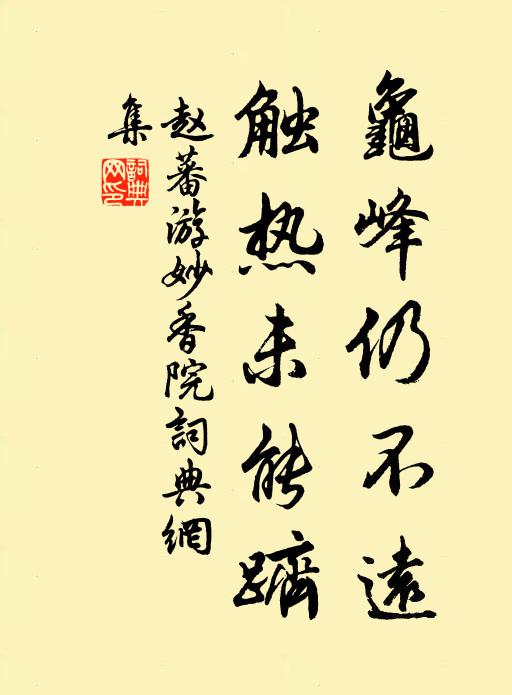 龜峰仍不遠
触热未能躋
赵蕃游妙香院詞典網
集
詞典
网印